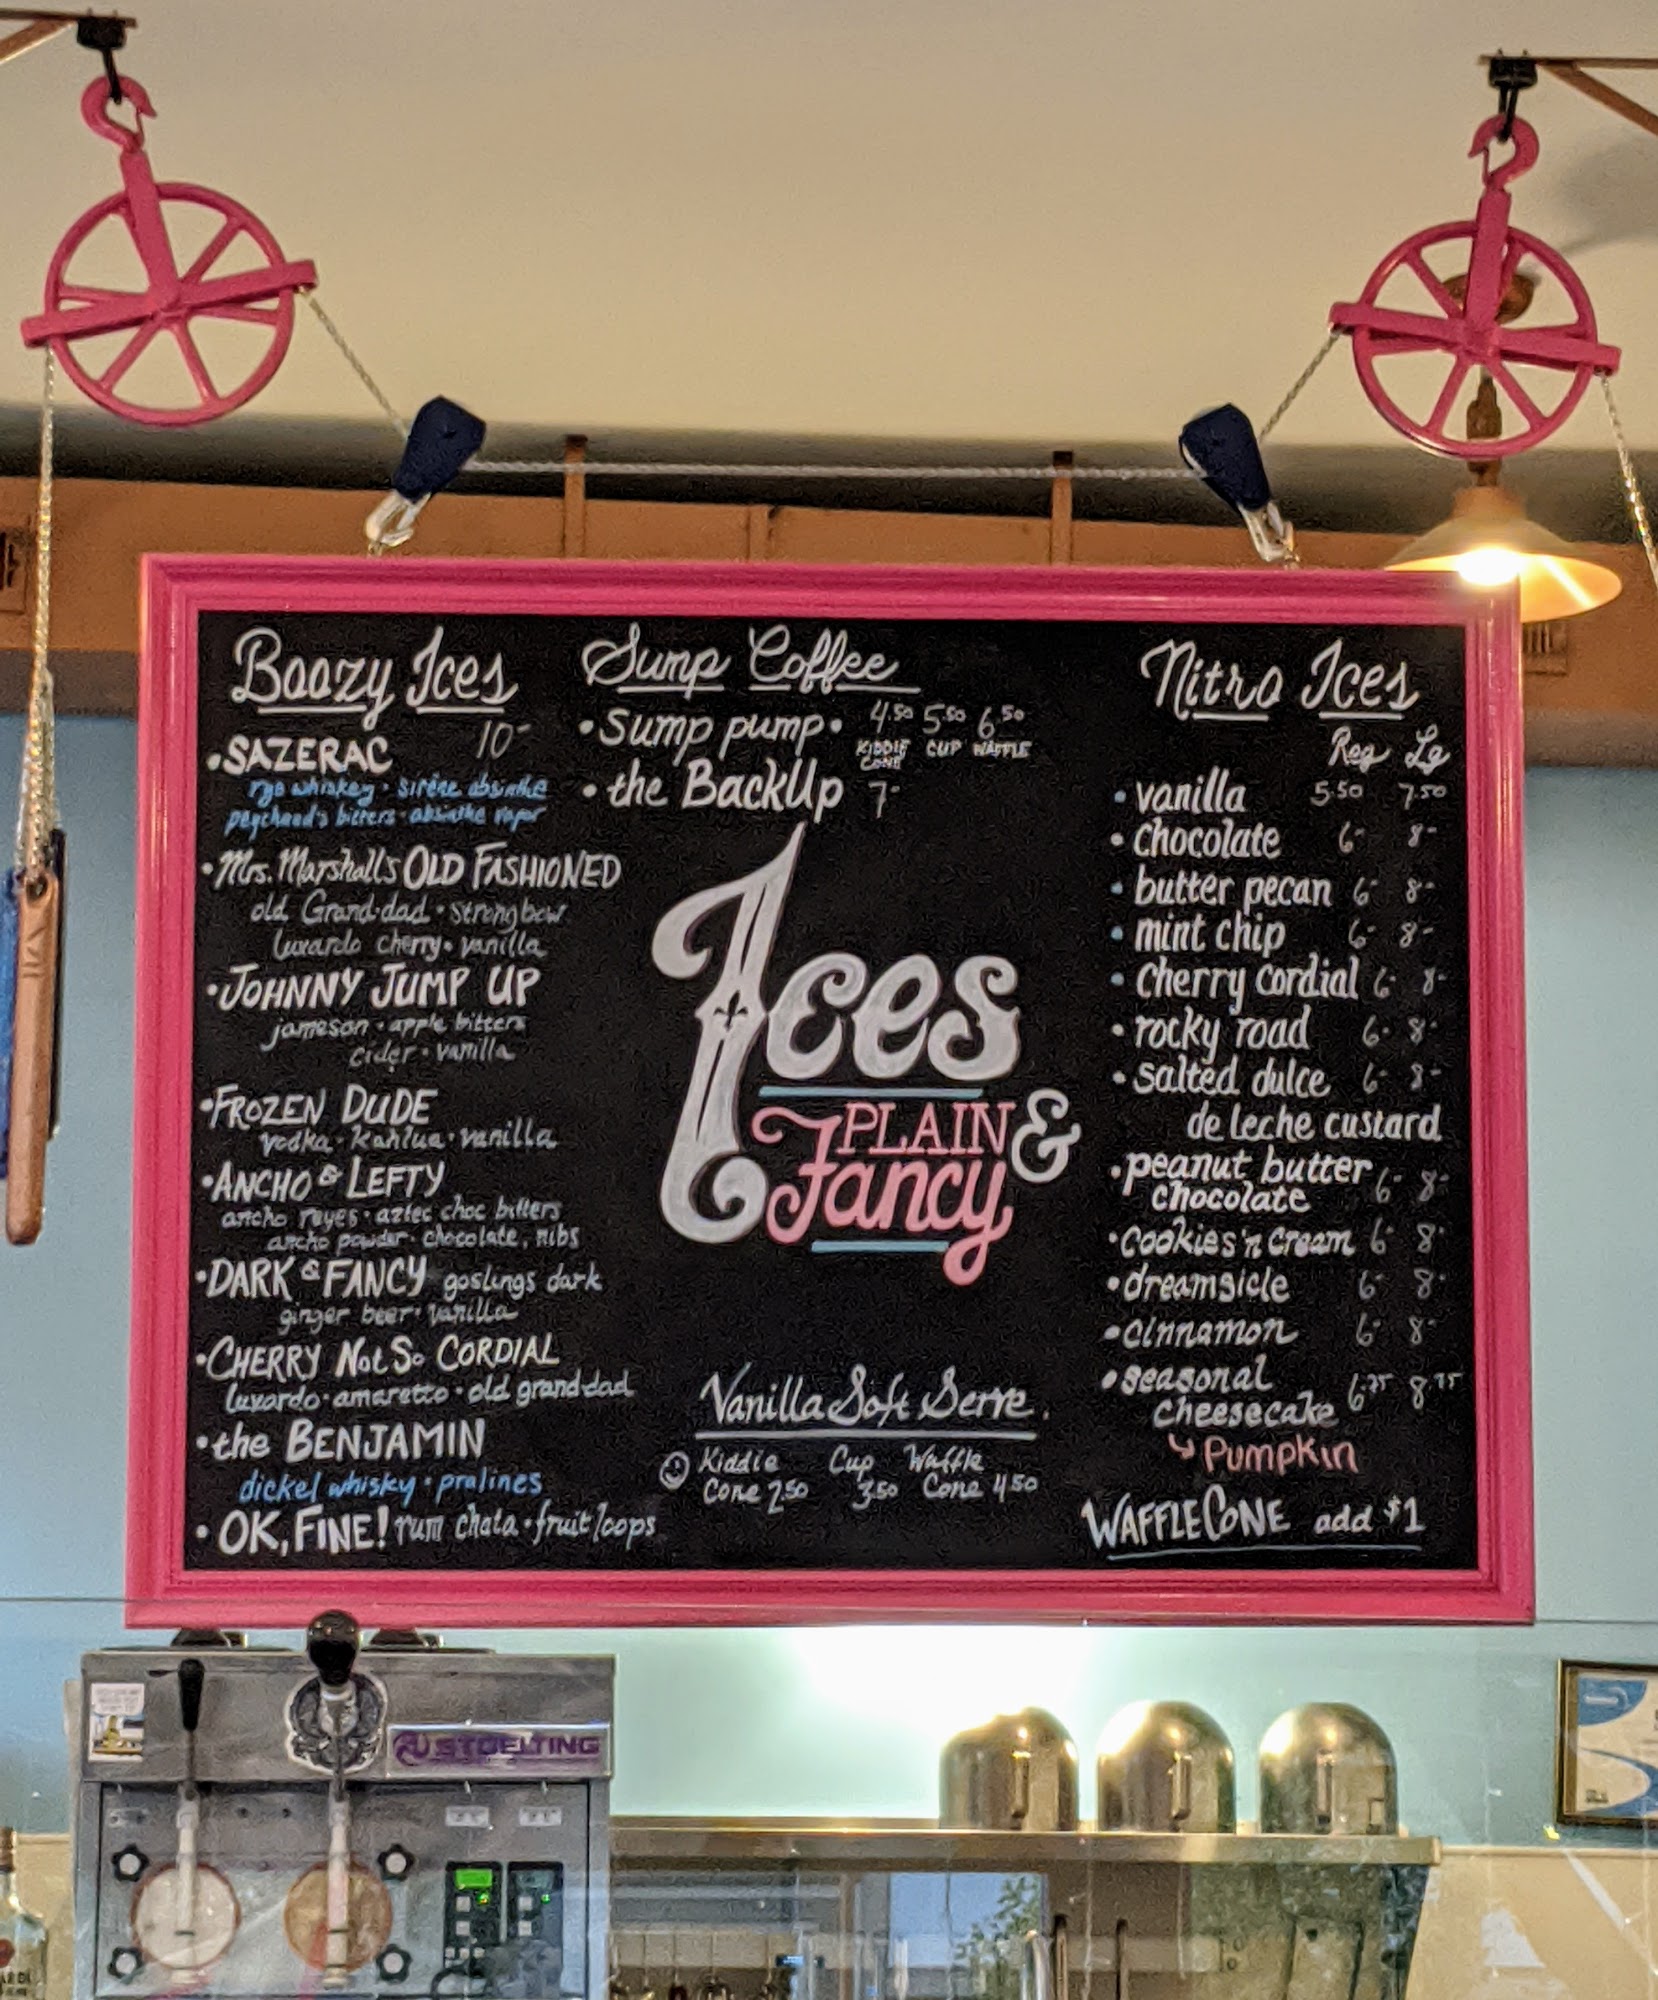 Boozy Ices
10-
• SAZERAC
rye whiskey • sirène absinthe
peychaud's bitters • absinthe vapor
• Mrs. Marshall's OLD FASHIONED
old Grand-dad • strongbow
luxardo cherry • vanilla
• JOHNNY JUMP UP
jameson • apple bitters
cider • vanilla
• FROZEN DUDE
vodka • kahlua • vanilla
• ANCHO & LEFTY
ancho reyes • aztec choc bitters
ancho powder • chocolate, nibs
• DARK & FANCY goslings dark
ginger beer • vanilla
• CHERRY Not So CORDIAL
luxardo • amaretto • old grand-dad
• the BENJAMIN
dickel whisky • pralines
• OK, FINE! rum chata • fruit loops
Sump Coffee
• Sump pump • 4.50 5.50 6.50
KIDDIE CUP WAFFLE
CONE
• the BackUp 7-
Ices
PLAIN &
Fancy
Vanilla Soft Serve.
Kiddie Cup Waffle
Cone 2.50 3.50 Cone 4.50
Nitro Ices
Reg Lg
• vanilla 5.50 7.50
• chocolate 6- 8-
• butter pecan 6- 8-
• mint chip 6- 8-
• cherry cordial 6- 8-
• rocky road 6- 8-
• salted dulce 6- 8-
de leche custard
• peanut butter
chocolate 6- 8-
• cookies 'n cream 6- 8-
• dreamsicle 6- 8-
• cinnamon 6- 8-
• seasonal
cheesecake 6.75 8.75
↳ Pumpkin
WAFFLE CONE add $1
STOELTING